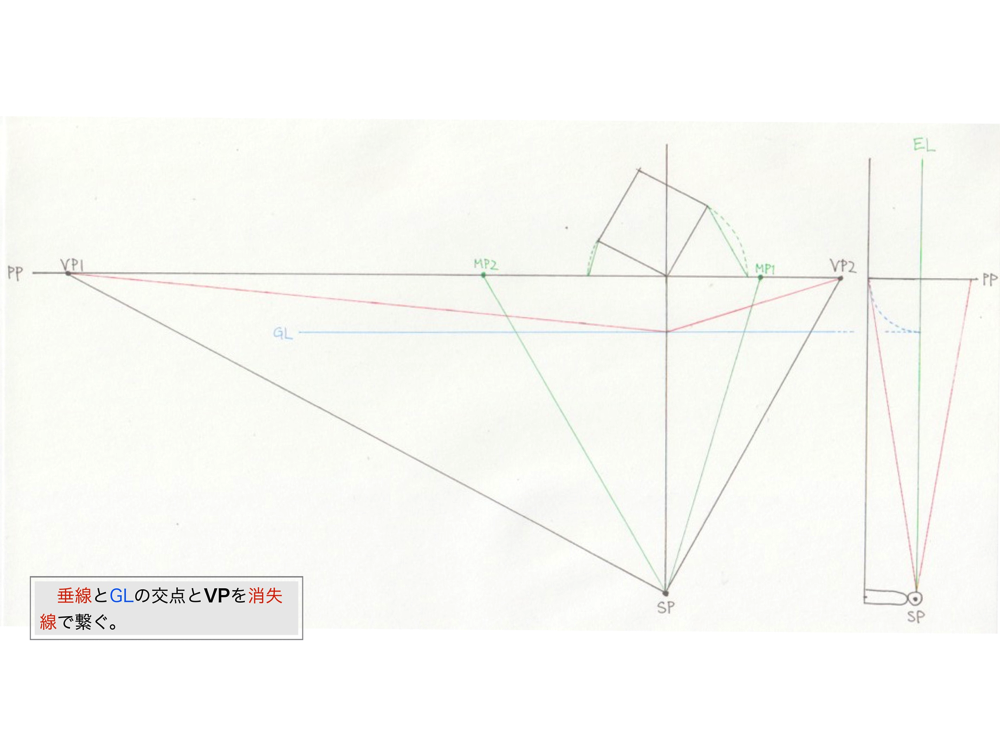 EL
PP
VP1
MP2
MP1
VP2
PP
GL
SP
SP
垂線とGLの交点とVPを消失
線で繋ぐ。